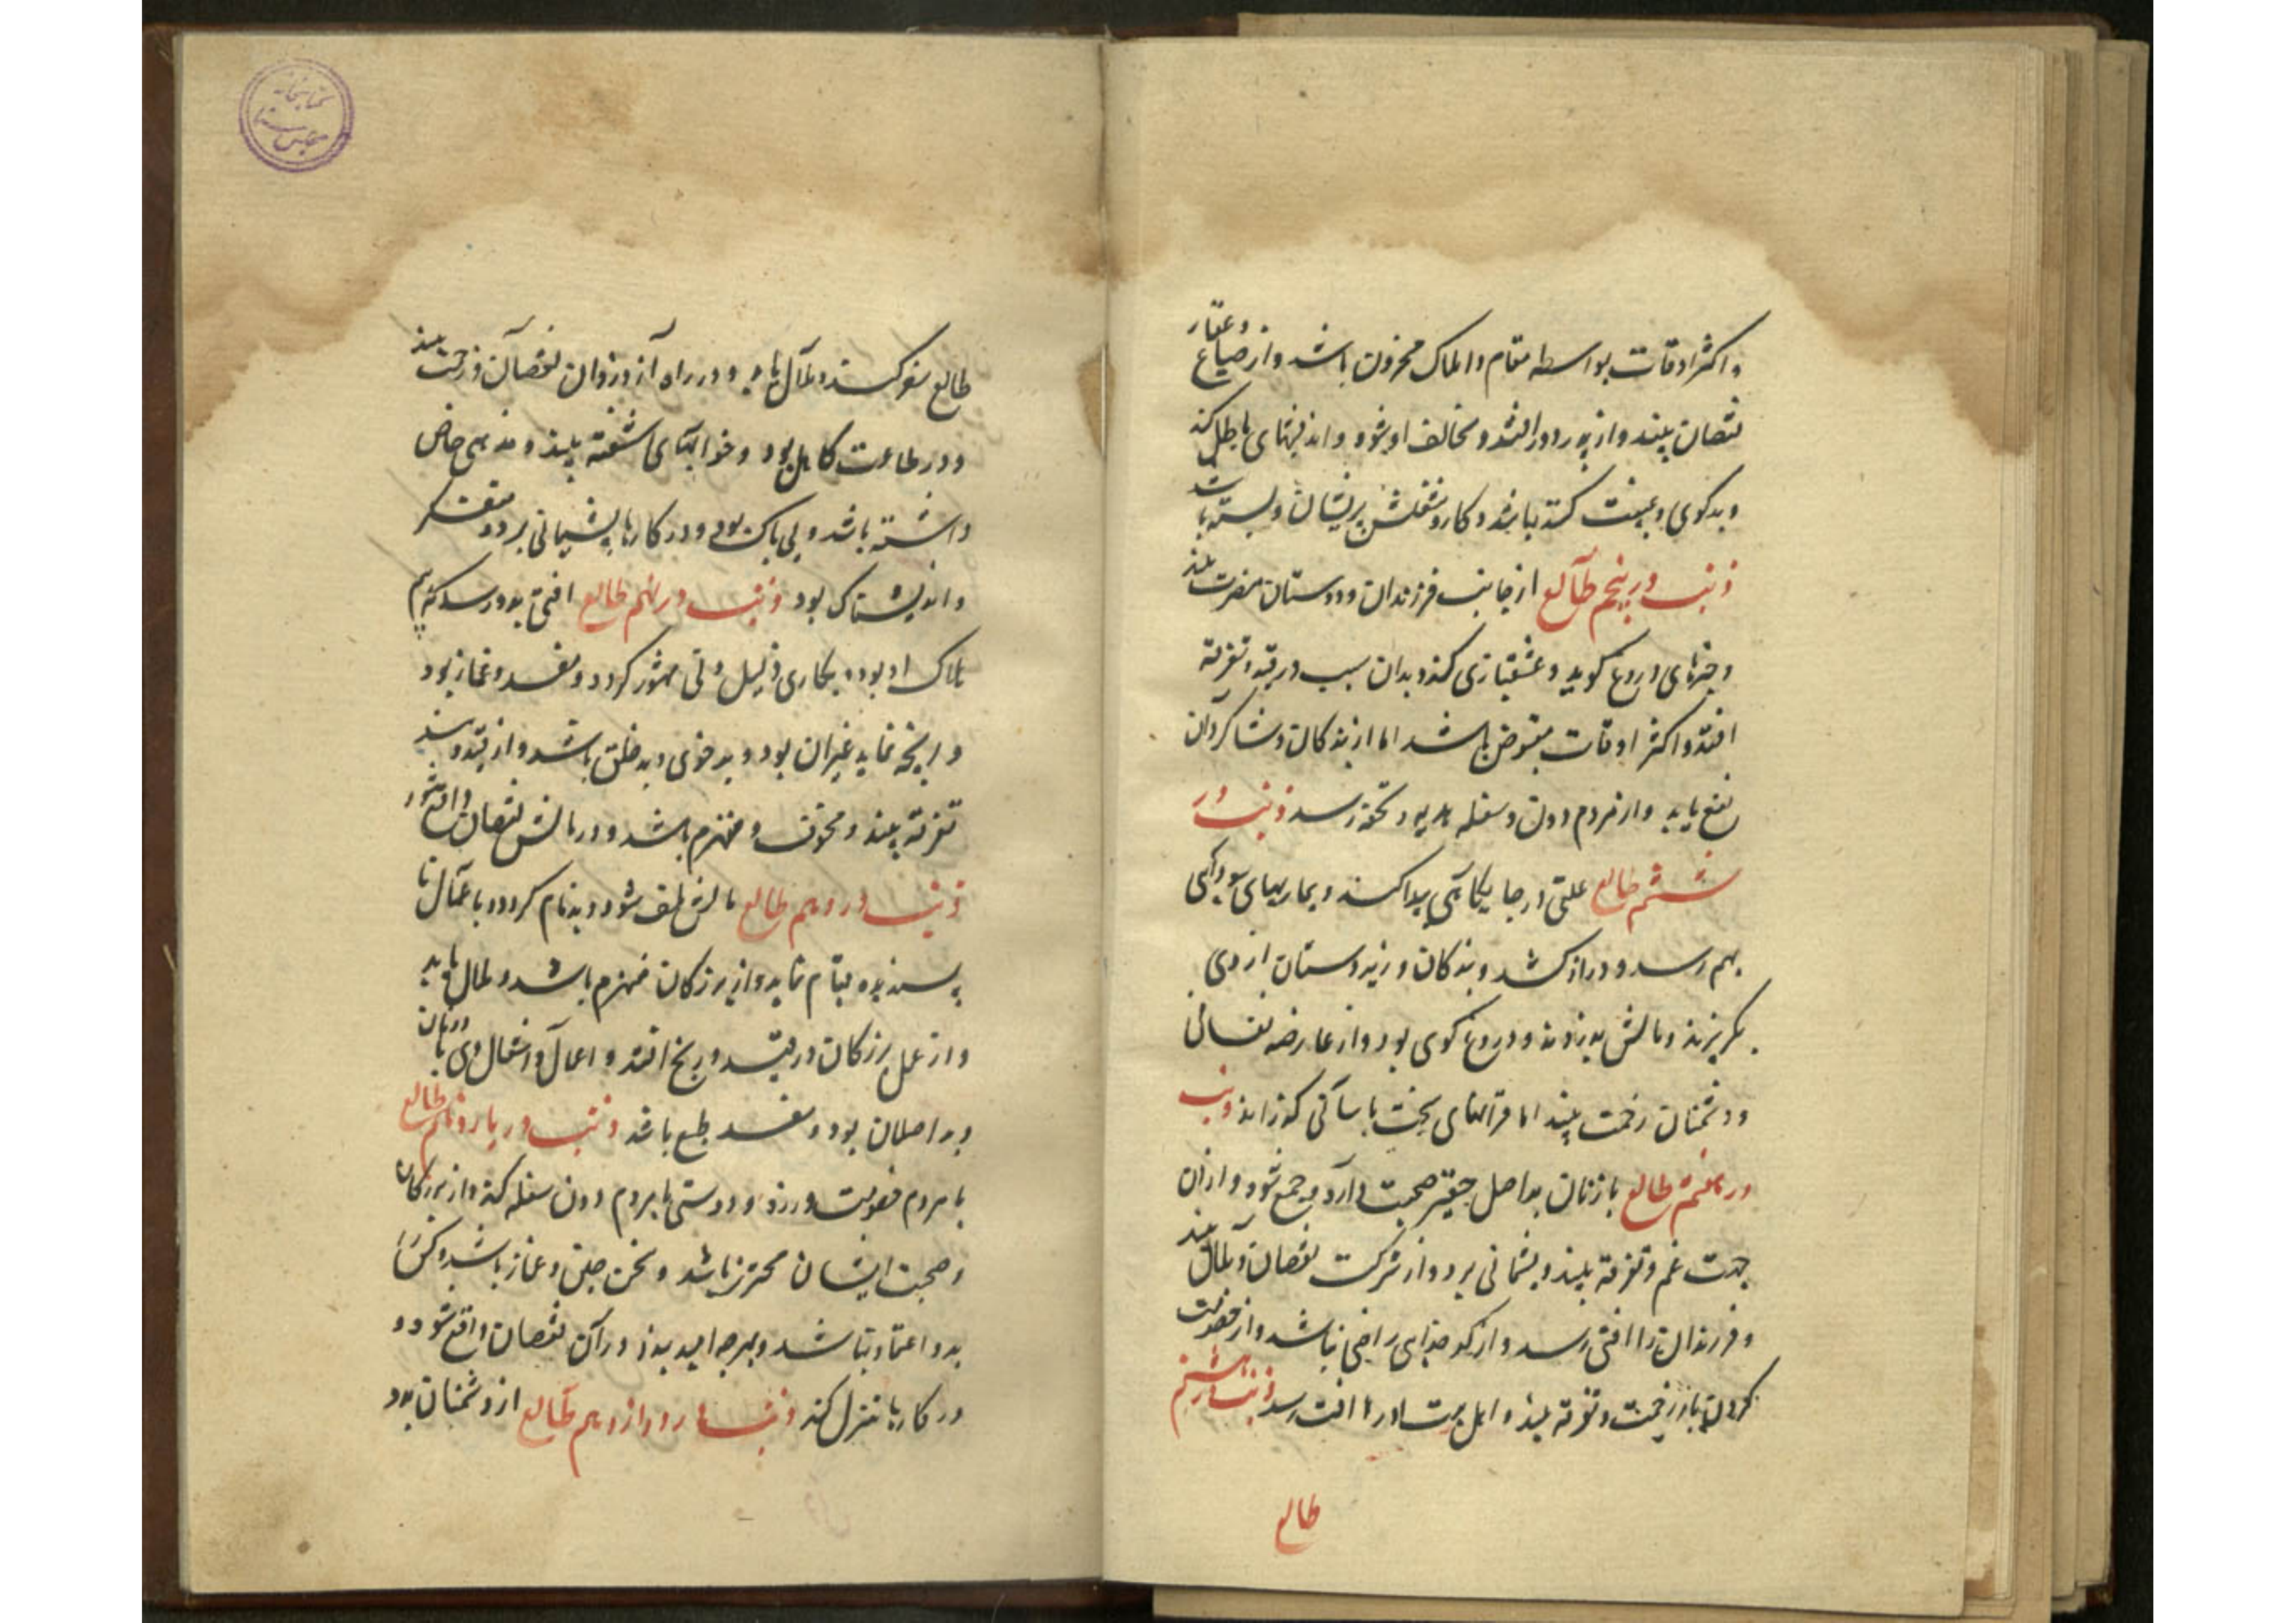 واکثر اوقات بواسطه مقام واملاک محزون باشد واز ضیاع وعقار
نقصان بیند واز پدر دور افتد ومخالف او شود واندیشهای باطل کند
وبدکوی وغیبت کننده باشد وکار وشغلش پریشان وبسته باشد
ذنب در پنجم طالع از جانب فرزندان ودوستان مضرت بیند
وخبرهای دروغ کوید وعشقبازی کند وبدان سبب در فتنه وتفرقه
افتد واکثر اوقات مقبوض باشد اما از بندکان وشاکردان
نفع یابد واز مردم دون وسفله هدیه وتحفه رسد ذنب در
ششم طالع علتی در جایکاهی پیدا کند وبیماریهای سودایی
بهم رسد ودراز کشد وبندکان وزیردستان از وی
بکریزند ومالش بدزدند ودروغ کوی بود واز عارضه نفسانی
ودشمنان زحمت بیند اما قرانهای سخت باسانی کذراند ذنب
در هفتم طالع با زنان بداصل حقیر صحبت دارد وجمع شود وازان
جهت غم وتفرقه بیند وپشمانی برد واز شرکت نقصان ومال بیند
وفرزندان را افتی رسد واز کدخدایی راضی نباشد واز خصومت
کردن با زن زحمت وتفرقه بیند واهل بیت او را افت رسد ذنب در هشتم
طالع
طالع سفر کند ومال یابد ودر راه از دزدان نقصان وزحمت بیند
ودر طاعت کاهل بود وخوابهای اشفته بیند ومذهبی خاص
داشته باشد وبی باک بود ودر کارها پشیمانی برد ومتفکر
واندیشناک بود ذنب در نهم طالع افتی بدو رسد که بیم
هلاک او بود وبکاری ذلیل ودنی مشهور کردد ومفسد وغماز بود
وبد خوی وبد خلق باشد واز فتنه وسند
تفرقه بیند ومخوف ومنهزم باشد ودر مالش نقصان واقع شود
ذنب در دهم طالع مالش تلف شود وبدنام کردد وباعمال نا
پسندیده قیام نماید واز بزرکان منهزم باشد ومال یابد
واز عمل بزرکان در فتنه ورنج افتد واعمال واشغال وی در زبان
وبداصلان بود ومفسد طبع باشد ذنب در یازدهم طالع
با مردم خصومت ورزد ودوستی با مردم دون سفله کند واز بزرکان
وصحبت ایشان محترز باشد وسخن چین وغماز باشد وکس را
بدو اعتماد نباشد وبهرچه امید بندد در آن نقصان واقع شود و
در کارها تنزل کند ذنب در دوازدهم طالع از دشمنان بود
کتابخانه
مجلس سنا